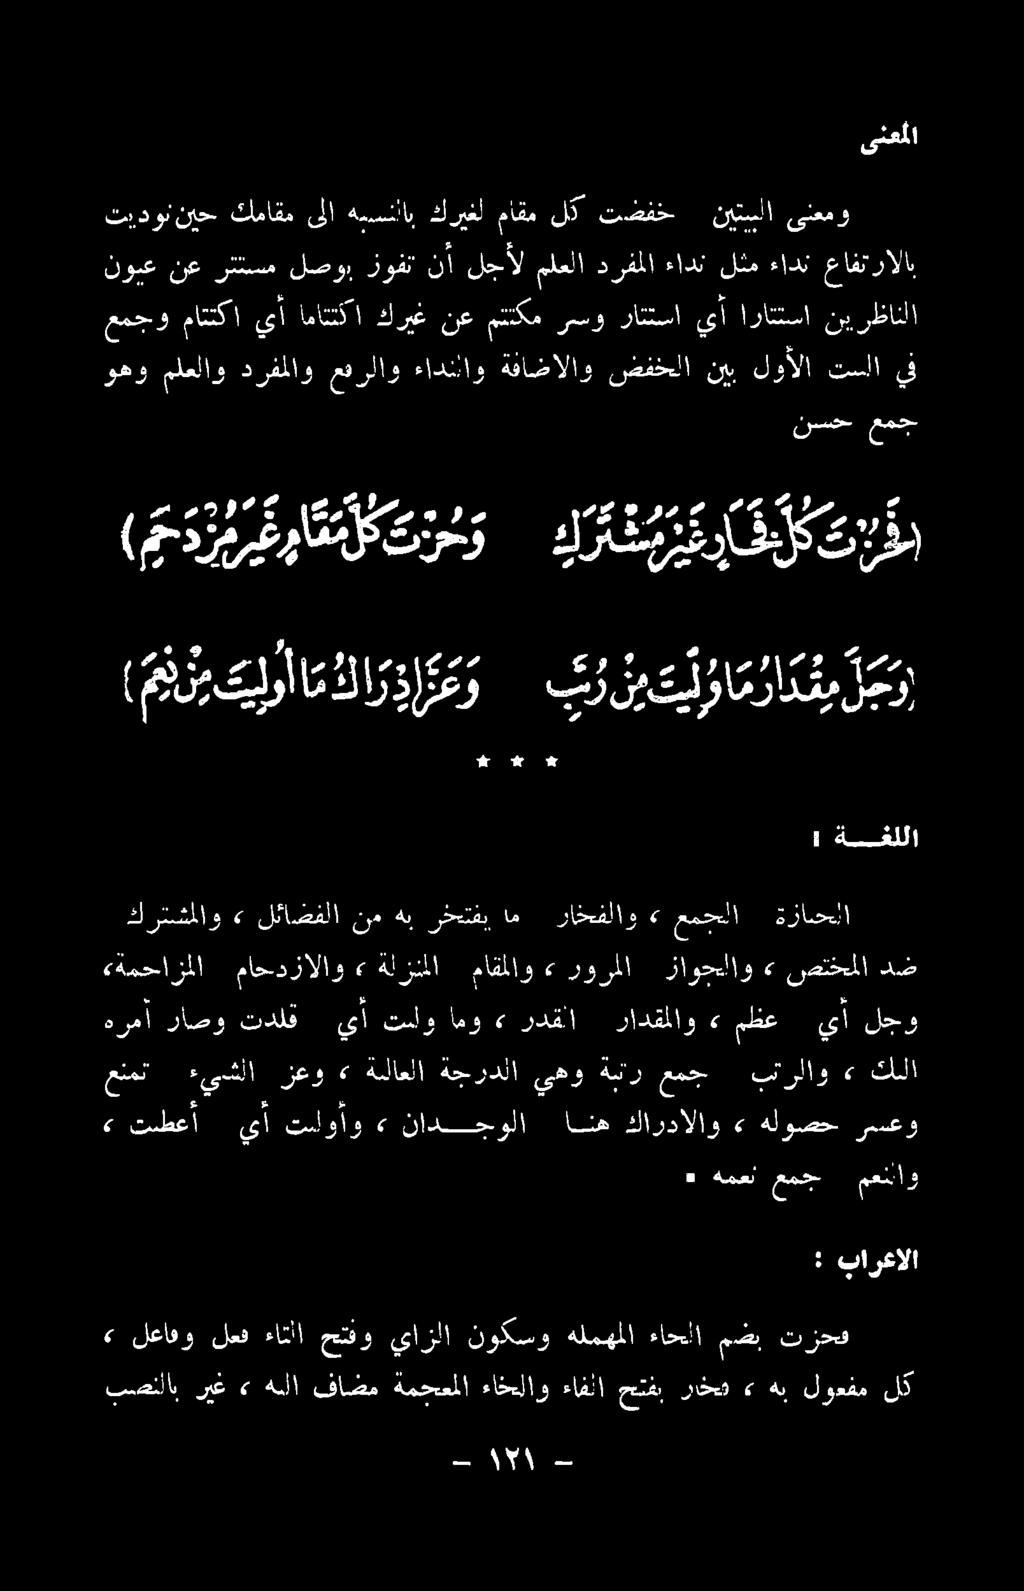 المعنى
ومعنى البيتين خفضت كل مقام لغيرك بالنسبه الى مقامك حين نوديت
بالارتفاع نداء مثل نداء المفرد العلم لأجل أن تفوز بوصل مستتر عن عيون
الناظرين استتارا أي استتار وسر مكتتم عن غيرك اكتتاما أي اكتتام وجمع
في الست الأول بين الخفض والاضافة والنداء والرفع والمفرد والعلم وهو
جمع حسن
(فَحُزْتَ كُلَّ فَخَارٍ غَيْرَ مُشْتَرَكٍ وَحُزْتَ كُلَّ مَقَامٍ غَيْرَ مُزْدَحَمِ)
(وَجَلَّ مِقْدَارُ مَا وُلِّيتَ مِنْ رُتَبٍ وَعَزَّ إِدْرَاكُ مَا أُولِيتَ مِنْ نِعَمِ)
* * *
اللغـــة :
الحيازة الجمع ، والفخار ما يفتخر به من الفضائل ، والمشترك
ضد المختص ، والجواز المرور ، والمقام المنزلة ، والازدحام المزاحمة،
وجل أي عظم ، والمقدار القدر ، وما وليت أي قلدت وصار أمره
اليك ، والرتب جمع رتبة وهي الدرجة العالية ، وعز الشيء تمنع
وعسر حصوله ، والادراك هنــا الوجــدان ، وأوليت أي أعطيت ،
والنعم جمع نعمه .
الاعراب :
فحزت بضم الحاء المهمله وسكون الزاي وفتح التاء فعل وفاعل ،
كل مفعول به ، فخار بفتح الفاء والخاء المعجمة مضاف اليه ، غير بالنصب
- ١٢١ -